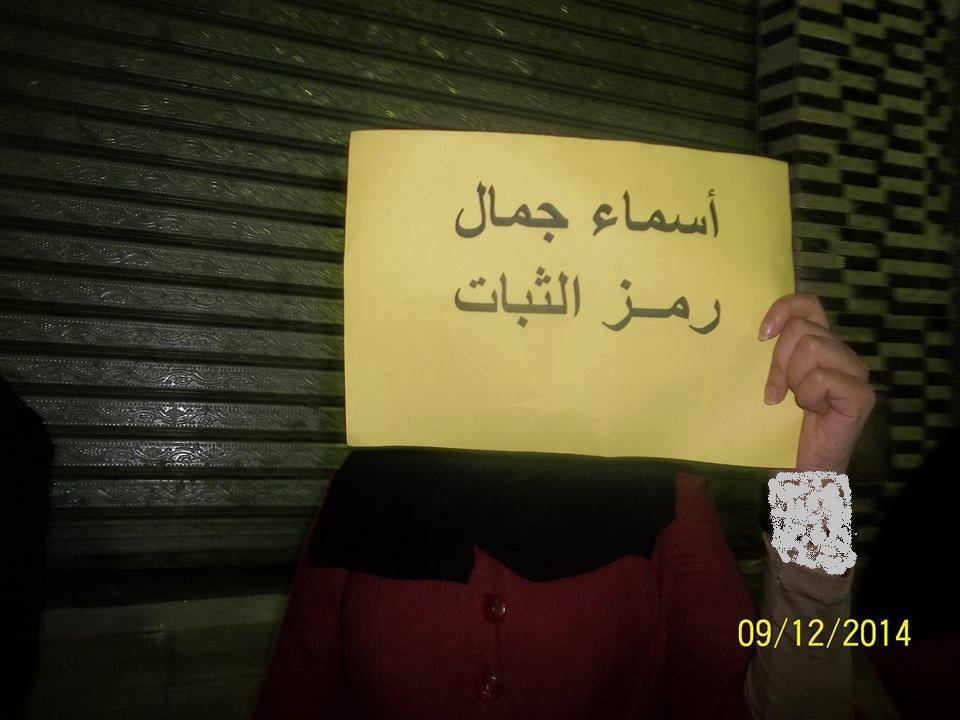 أسماء جمال
رمــز الثبات
09/12/2014